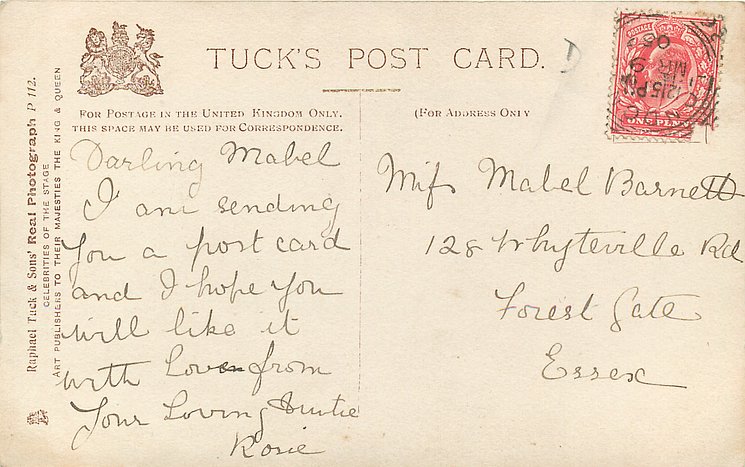 TUCK'S POST CARD.
FOR POSTAGE IN THE UNITED KINGDOM ONLY.
THIS SPACE MAY BE USED FOR CORRESPONDENCE.
(FOR ADDRESS ONLY
Raphael Tuck & Sons' Real Photograph P 112.
CELEBRITIES OF THE STAGE
ART PUBLISHERS TO THEIR MAJESTIES THE KING & QUEEN
Darling Mabel
I am sending
you a post card
and I hope you
will like it
with Love from
Your Loving Auntie
Rosie
Miss Mabel Barnett
128 Whyteville Rd
Forest Gate
Essex
POSTAGE
ONE PENNY